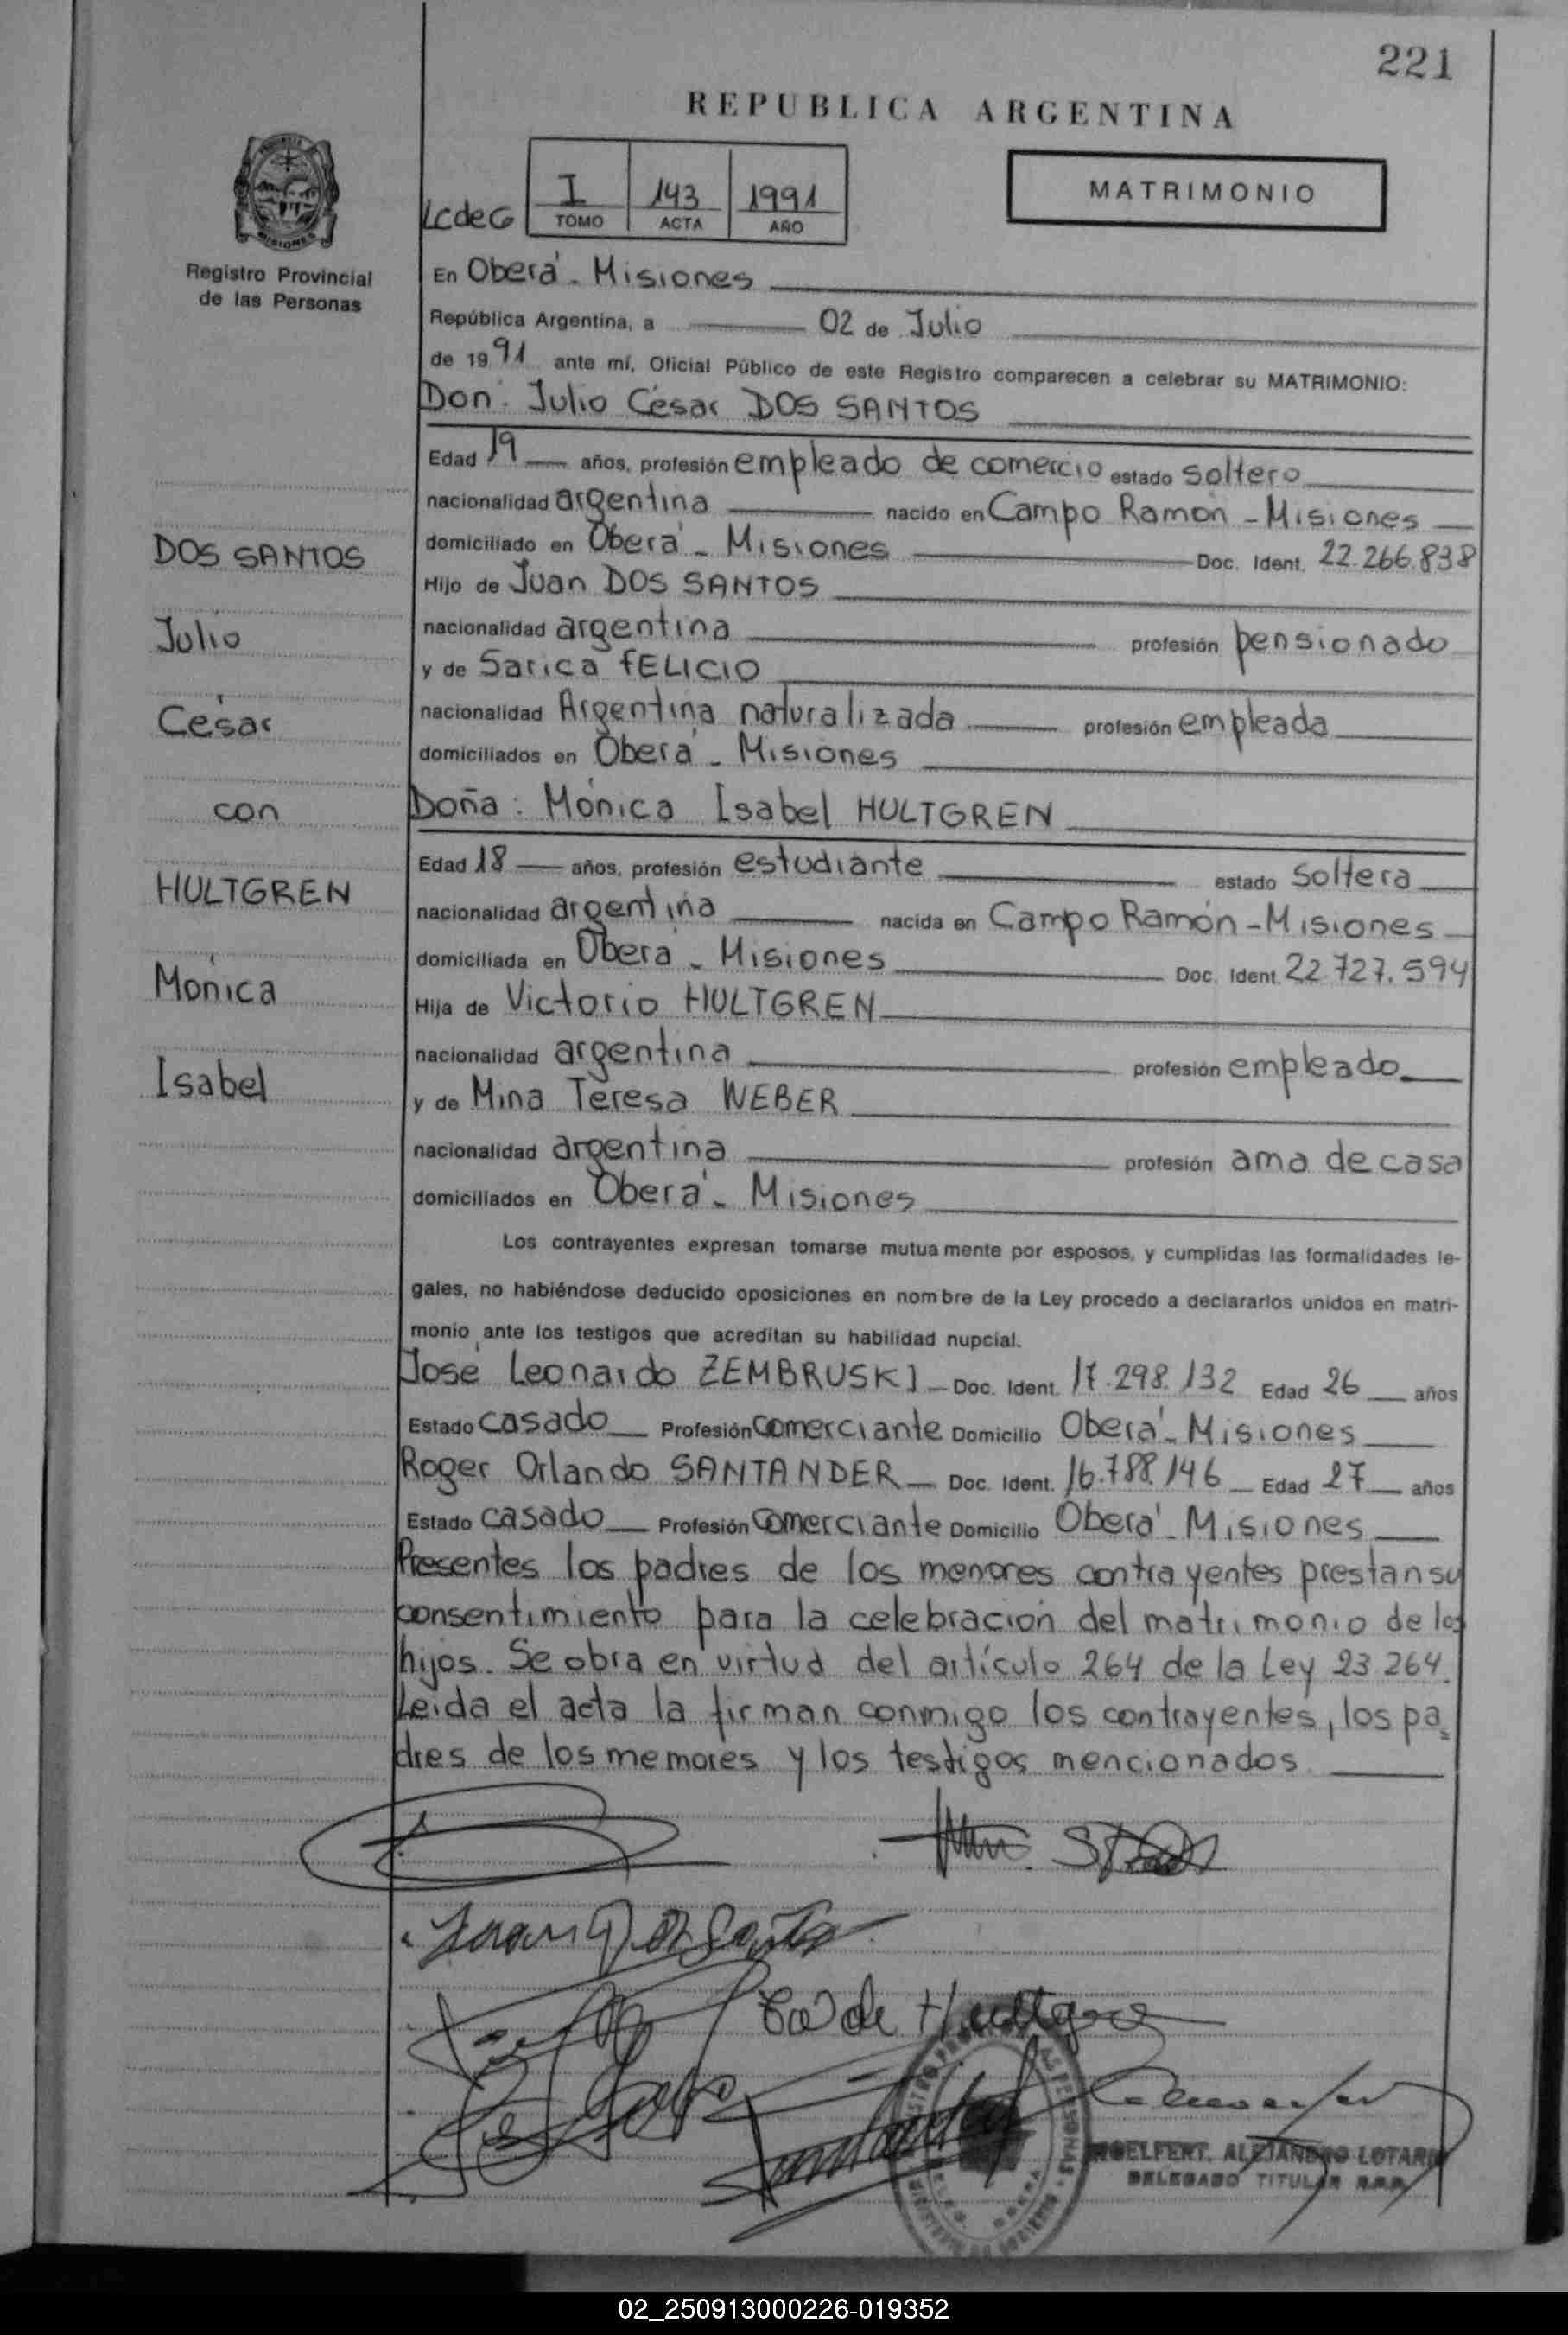 221
REPUBLICA ARGENTINA
I 143 1991
TOMO ACTA AÑO
MATRIMONIO
Registro Provincial
de las Personas
En Oberá - Misiones
República Argentina, a 02 de Julio
de 1991 ante mí, Oficial Público de este Registro comparecen a celebrar su MATRIMONIO:
Don: Julio César DOS SANTOS
Edad 19 años, profesión empleado de comercio estado soltero
nacionalidad argentina nacido en Campo Ramón - Misiones
domiciliado en Oberá - Misiones Doc. Ident. 22.266.838
Hijo de Juan DOS SANTOS
nacionalidad argentina profesión pensionado
y de Sarica FELICIO
nacionalidad Argentina naturalizada profesión empleada
domiciliados en Oberá - Misiones
Doña: Mónica Isabel HULTGREN
Edad 18 años, profesión estudiante estado soltera
nacionalidad argentina nacida en Campo Ramón - Misiones
domiciliada en Oberá - Misiones Doc. Ident. 22.727.594
Hija de Victorio HULTGREN
nacionalidad argentina profesión empleado
y de Mina Teresa WEBER
nacionalidad argentina profesión ama de casa
domiciliados en Oberá - Misiones
DOS SANTOS
Julio
César
con
HULTGREN
Mónica
Isabel
Los contrayentes expresan tomarse mutuamente por esposos, y cumplidas las formalidades le-
gales, no habiéndose deducido oposiciones en nombre de la Ley procedo a declararlos unidos en matri-
monio ante los testigos que acreditan su habilidad nupcial.
José Leonardo ZEMBRUSKI - Doc. Ident. 17.298.132 Edad 26 años
Estado casado Profesión comerciante Domicilio Oberá - Misiones
Roger Orlando SANTANDER - Doc. Ident. 16.788.146 Edad 27 años
Estado casado Profesión comerciante Domicilio Oberá - Misiones
Presentes los padres de los menores contrayentes prestan su
consentimiento para la celebración del matrimonio de los
hijos. Se obra en virtud del artículo 264 de la Ley 23264.
Leida el acta la firman conmigo los contrayentes, los pa
dres de los memores y los testigos mencionados.
Juan Dos Santos
de Hultgren
ALEJANDRO LOTARIO
DELEGADO TITULAR R.P.P.
02_250913000226-019352